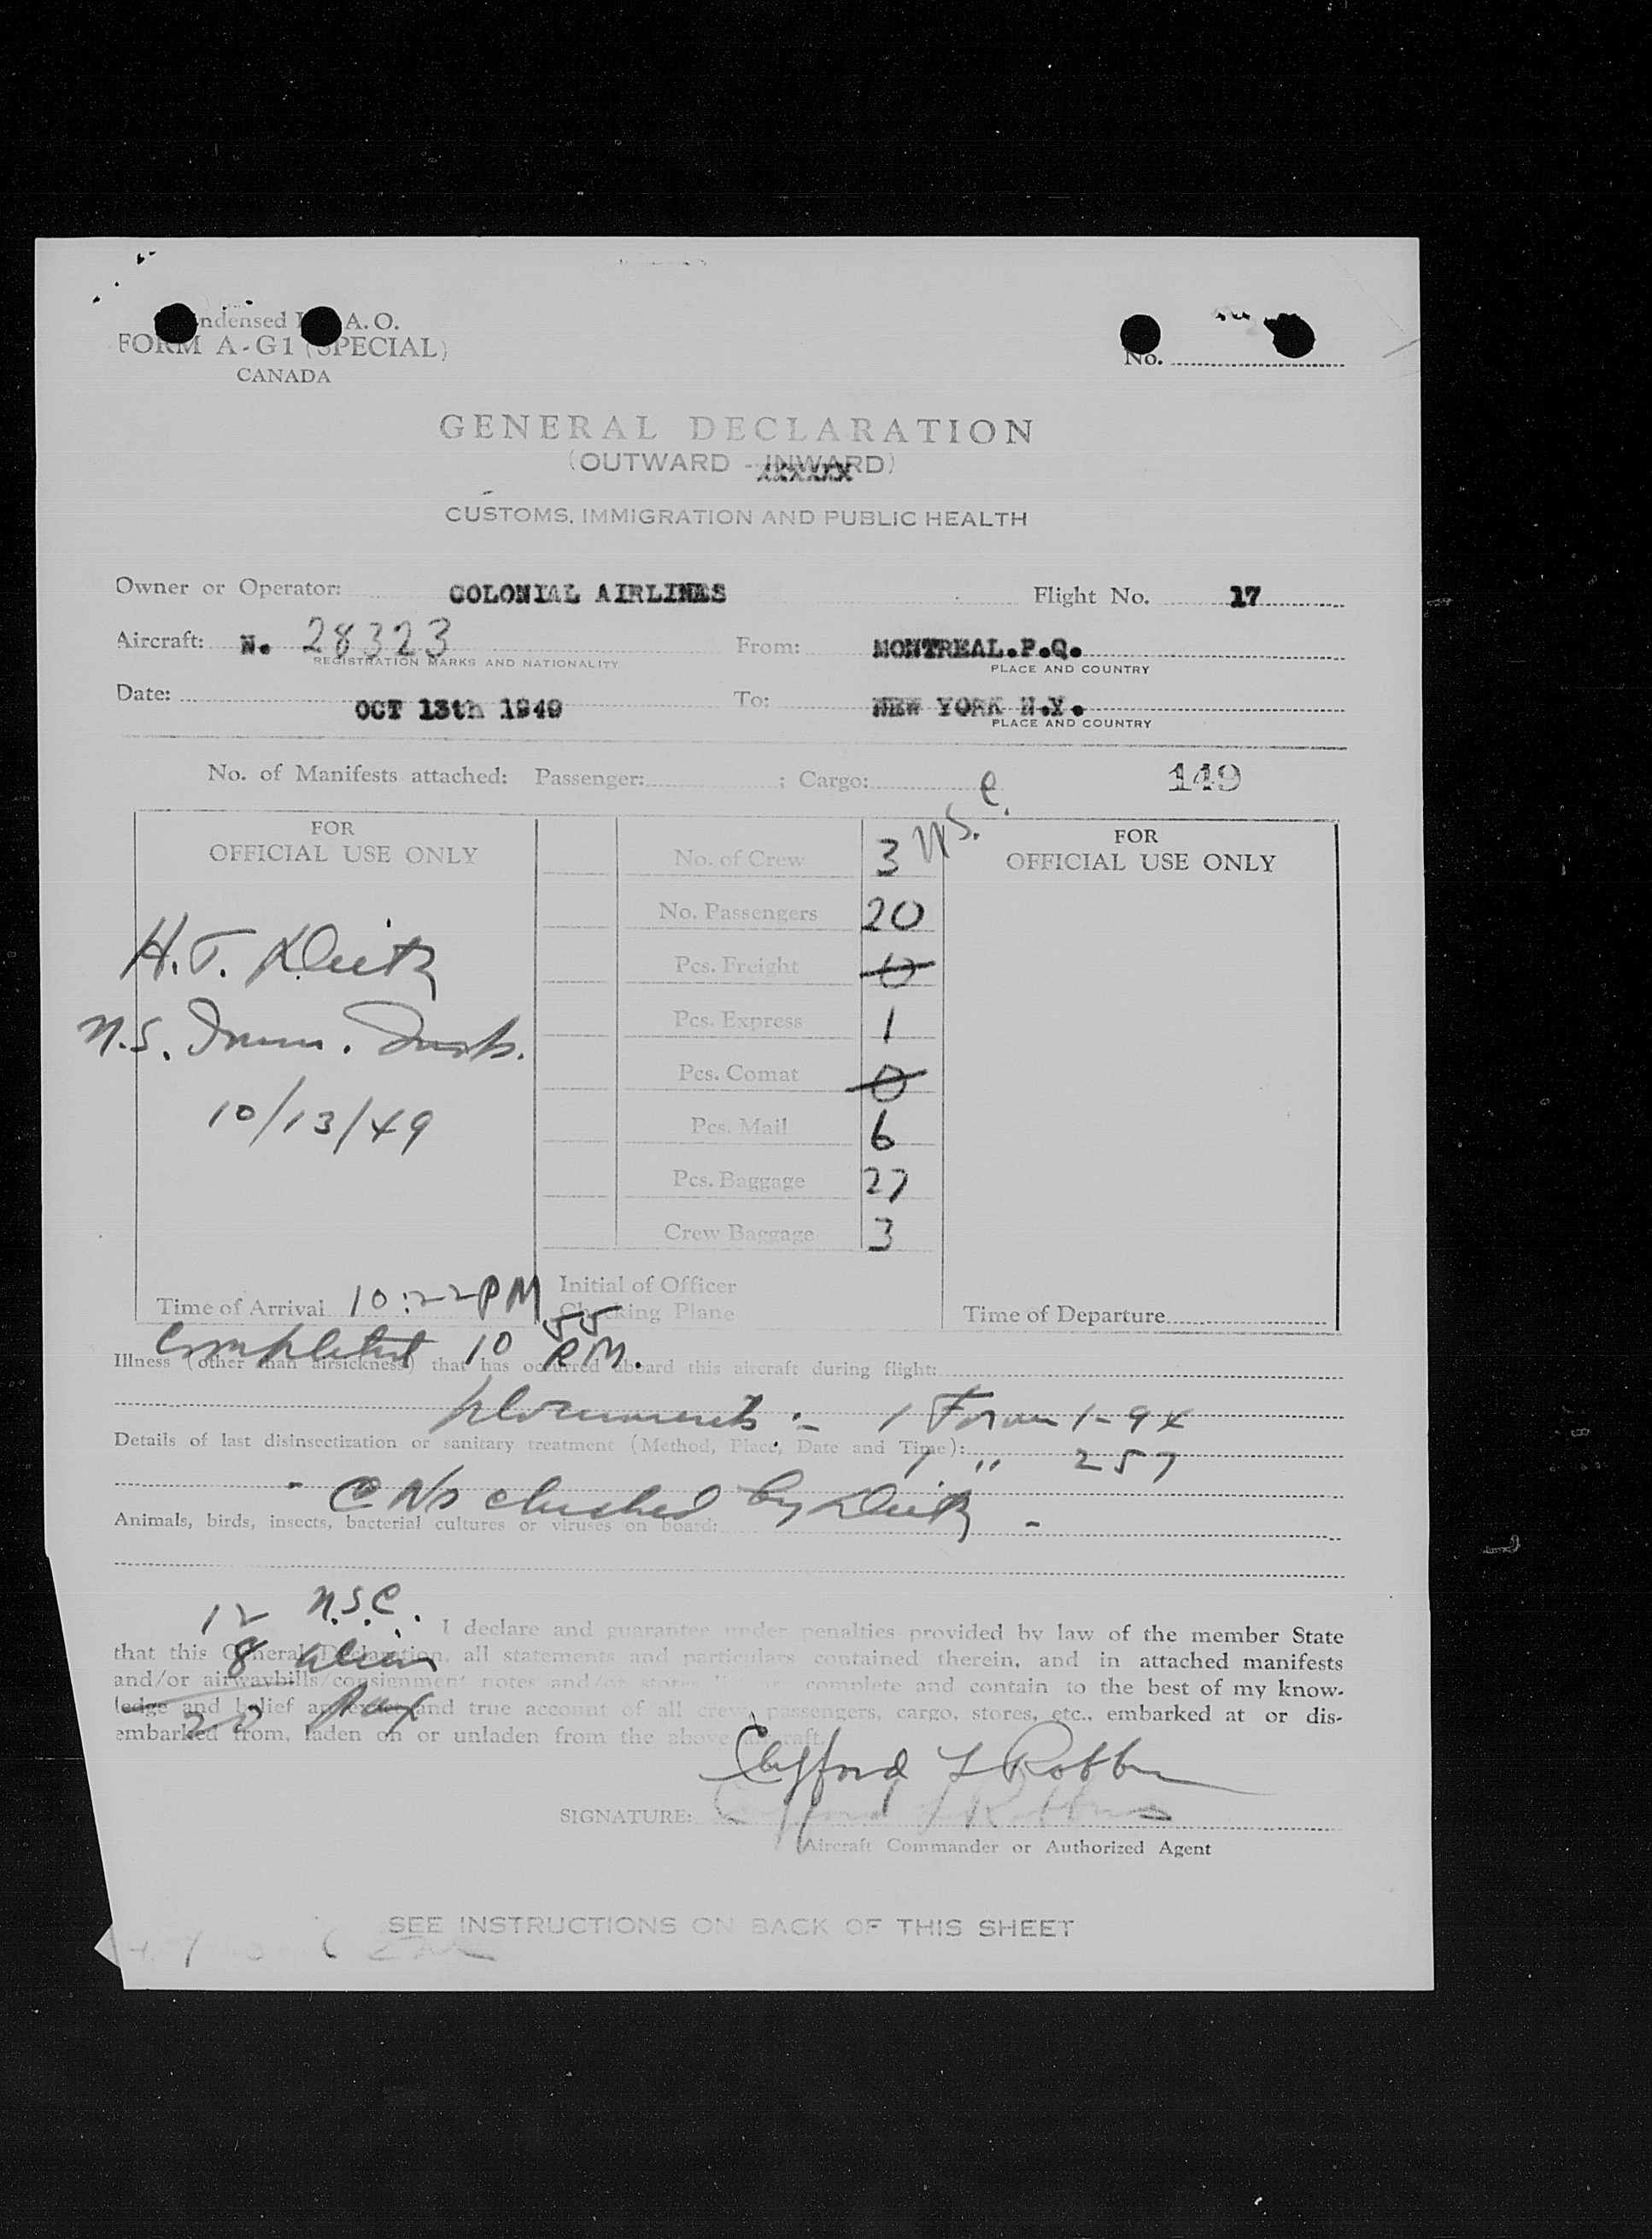 Condensed I.C.A.O.
FORM A-G1 (SPECIAL)
CANADA
No.
GENERAL DECLARATION
(OUTWARD - INWARD)
XXXXXX
CUSTOMS, IMMIGRATION AND PUBLIC HEALTH
Owner or Operator: COLONIAL AIRLINES Flight No. 17
Aircraft: N. 28323 From: MONTREAL.P.Q.
REGISTRATION MARKS AND NATIONALITY PLACE AND COUNTRY
Date: OCT 13th 1949 To: NEW YORK N.Y.
PLACE AND COUNTRY
No. of Manifests attached: Passenger: ; Cargo: 149
FOR
OFFICIAL USE ONLY
H.T. Deitz
10/13/49
Time of Arrival 10:22 PM
Completed 10 55 P.M.
No. of Crew 3 U.S.C.
No. Passengers 20
Pcs. Freight 0
Pcs. Express 1
Pcs. Comat 0
Pcs. Mail 6
Pcs. Baggage 27
Crew Baggage 3
Initial of Officer
Checking Plane
FOR
OFFICIAL USE ONLY
Time of Departure
Illness (other than airsickness) that has occurred aboard this aircraft during flight:
Documents :- 1 Form I-94
Details of last disinsectization or sanitary treatment (Method, Place, Date and Time):
1 " 257
checked by Deitz -
Animals, birds, insects, bacterial cultures or viruses on board:
12 U.S.C.
8 alien
20 Pax
I declare and guarantee under penalties provided by law of the member State
that this General Declaration, all statements and particulars contained therein, and in attached manifests
and/or airwaybills/consignment notes and/or stores list are complete and contain to the best of my know-
ledge and belief an exact and true account of all crew, passengers, cargo, stores, etc., embarked at or dis-
embarked from, laden on or unladen from the above aircraft.
Clifford L Robbins
SIGNATURE: Clifford L Robbins
Aircraft Commander or Authorized Agent
SEE INSTRUCTIONS ON BACK OF THIS SHEET